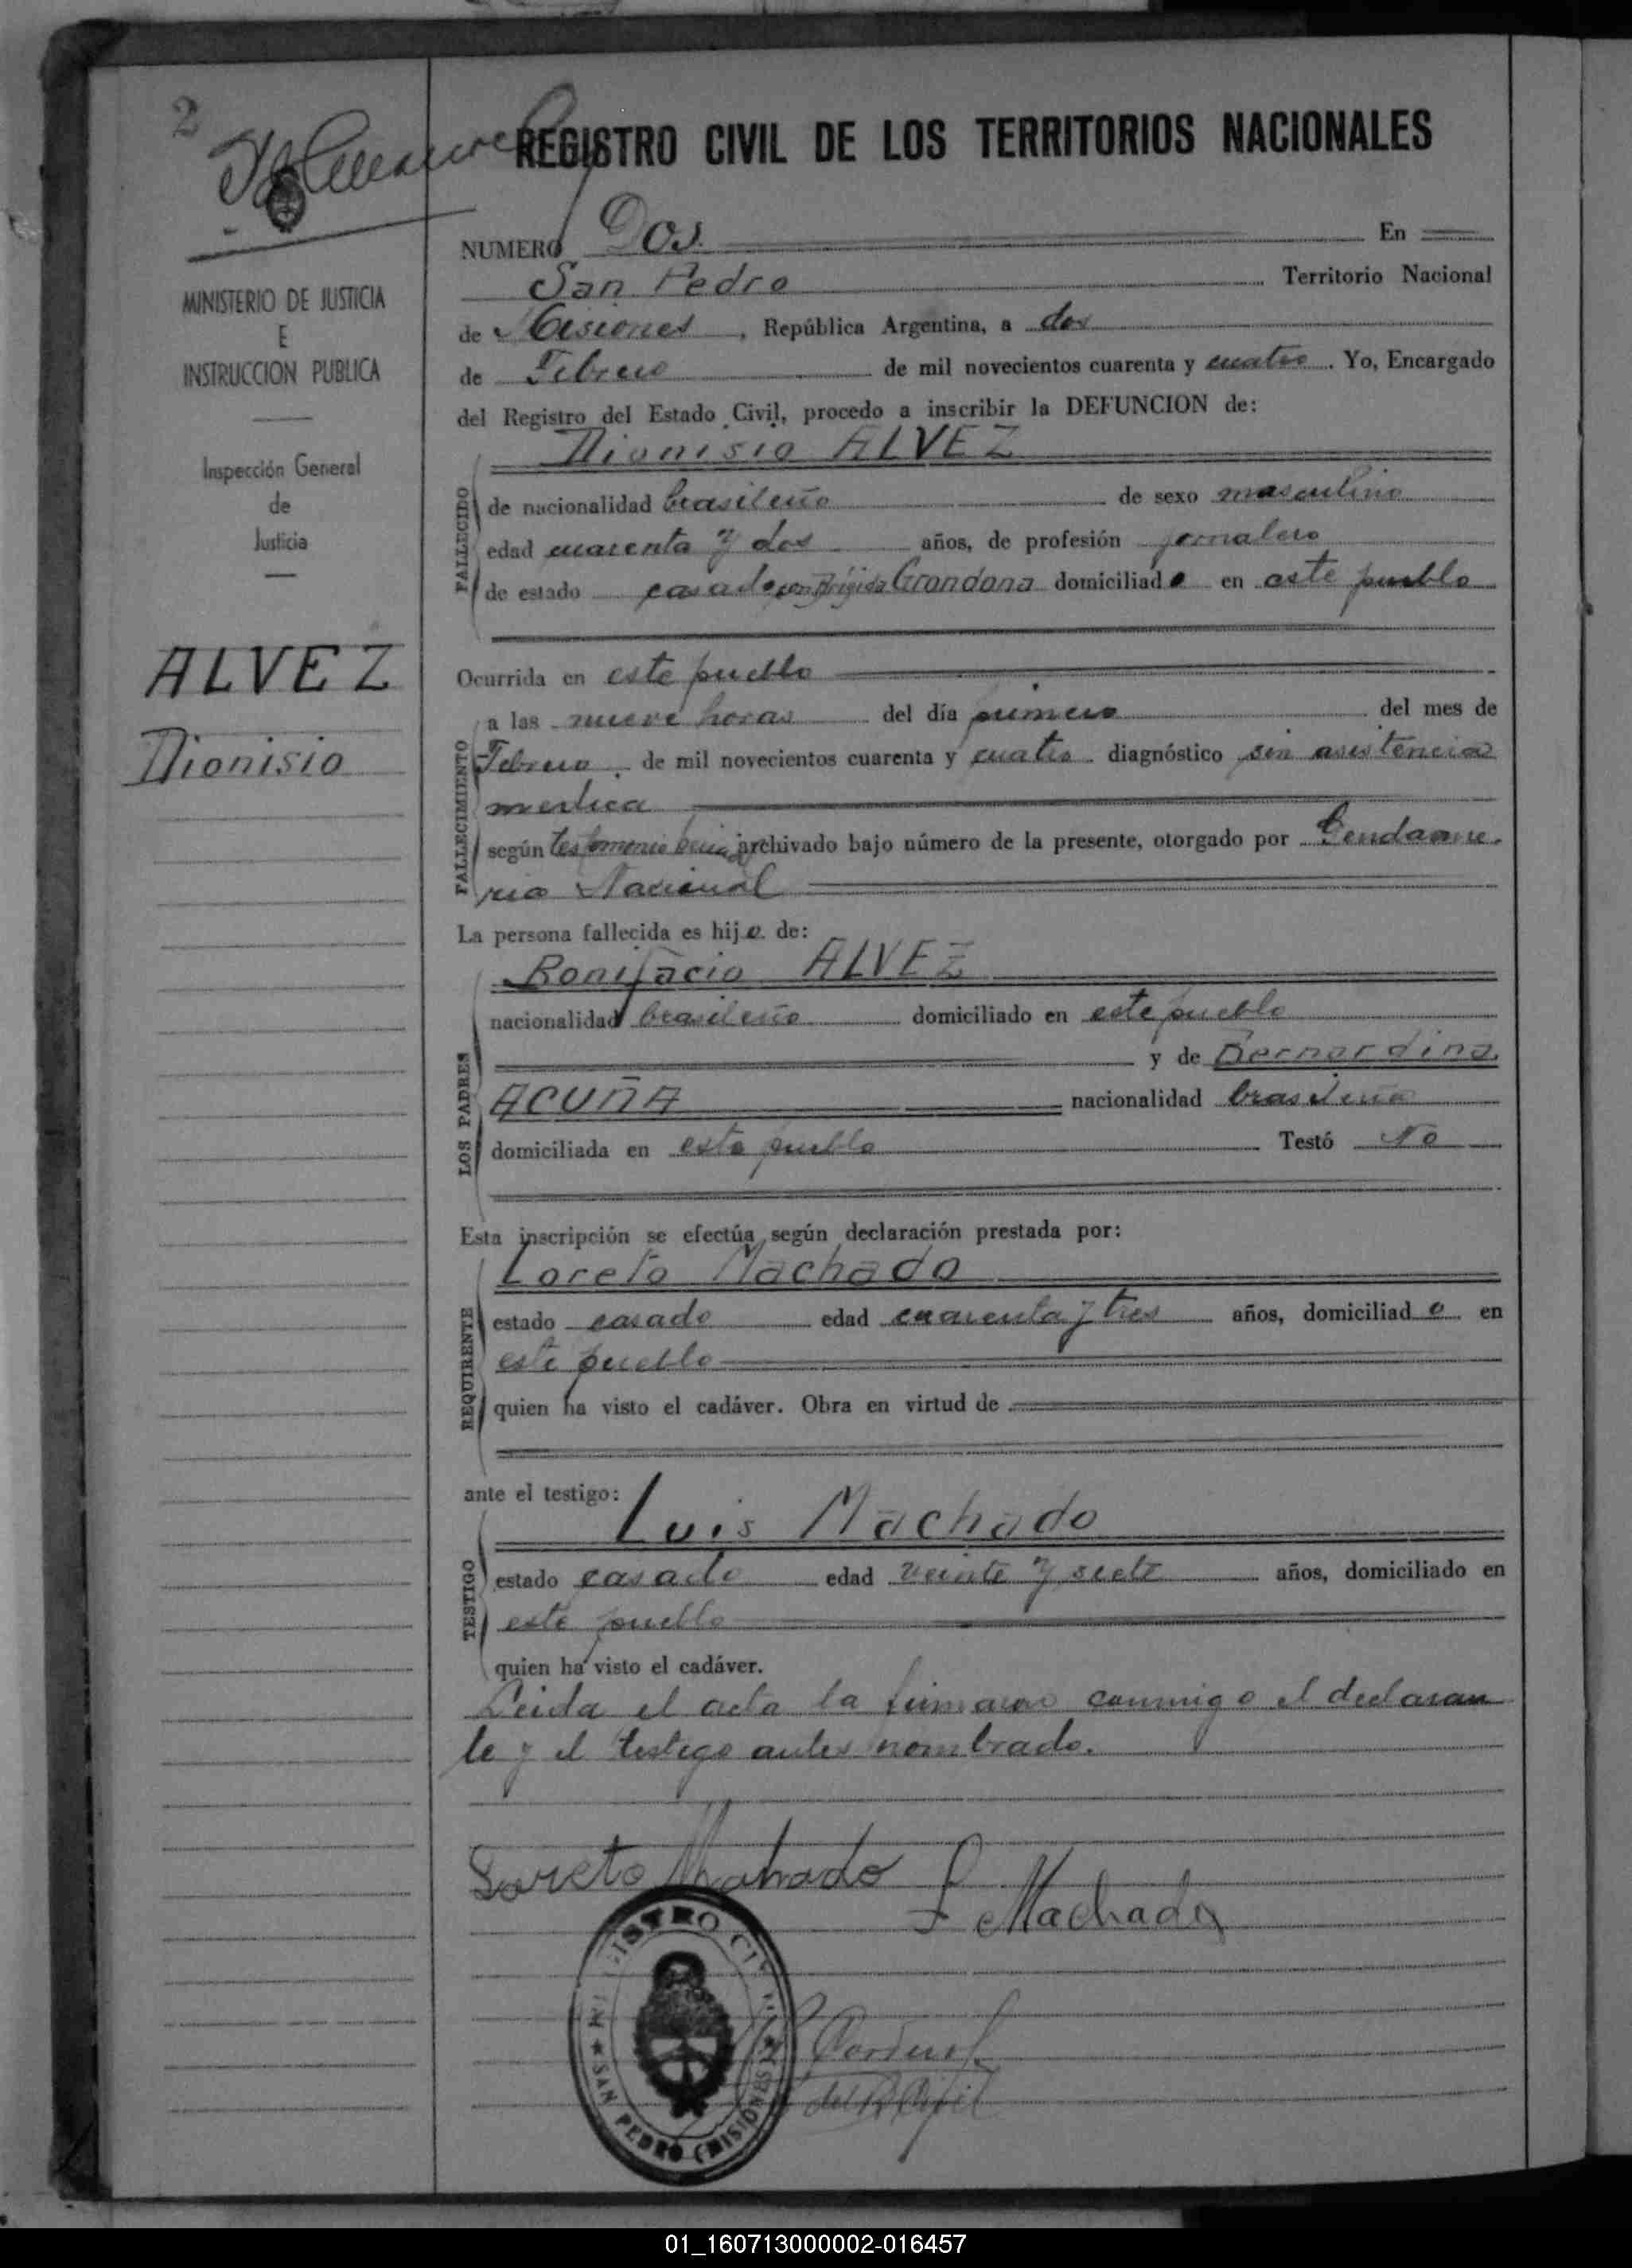 2
REGISTRO CIVIL DE LOS TERRITORIOS NACIONALES
MINISTERIO DE JUSTICIA
E
INSTRUCCION PUBLICA
Inspección General
de
Justicia
ALVEZ
Dionisio
NUMERO Dos. En
San Pedro Territorio Nacional
de Misiones, República Argentina, a dos
de Febrero de mil novecientos cuarenta y cuatro. Yo, Encargado
del Registro del Estado Civil, procedo a inscribir la DEFUNCION de:
Dionisio ALVEZ
FALLECIDO
de nacionalidad brasileño de sexo masculino
edad cuarenta y dos años, de profesión jornalero
de estado casado con Brígida Grondona domiciliado en este pueblo
Ocurrida en este pueblo
FALLECIMIENTO
a las nueve horas del día primero del mes de
Febrero de mil novecientos cuarenta y cuatro diagnóstico sin asistencia
medica
según testimonio archivado bajo número de la presente, otorgado por Gendarme-
ria Nacional
La persona fallecida es hijo de:
LOS PADRES
Bonifacio ALVEZ
nacionalidad brasileño domiciliado en este pueblo
y de Bernardina
ACUÑA nacionalidad brasileña
domiciliada en este pueblo Testó No
Esta inscripción se efectúa según declaración prestada por:
REQUIRENTE
Loreto Machado
estado casado edad cuarenta y tres años, domiciliado en
este pueblo
quien ha visto el cadáver. Obra en virtud de
ante el testigo:
TESTIGO
Luis Machado
estado casado edad veinte y siete años, domiciliado en
este pueblo
quien ha visto el cadáver.
Leida el acta la firmaron conmigo el declaran
te y el testigo antes nombrado.
Loreto Machado
L Machado
REGISTRO CIVIL
SAN PEDRO (MISIONES)
01_160713000002-016457